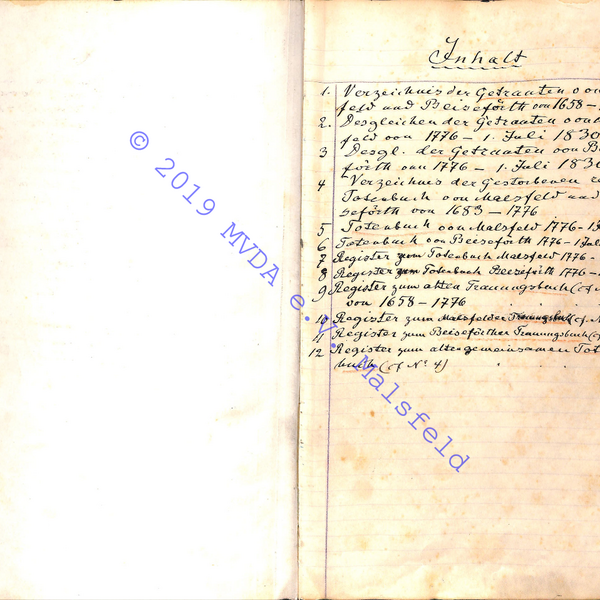 Inhalt
1. Verzeichnis der Getrauten von
feld und Beiseförth von 1658 –
2. Desgleichen der Getrauten von
feld von 1776 – 1. Juli 1830
3 Desgl. der Getrauten von B
förth von 1776 – 1. Juli 1830
4 Verzeichnis der Gestorbenen
Totenbuch von Malsfeld und
seförth von 1683 – 1776
5 Totenbuch von Malsfeld 1776 – 1
6 Totenbuch von Beiseförth 1776 – 1 Jul
7 Register zum Totenbuch Malsfeld 1776 –
8 Register zum Totenbuch Beiseförth 1776 –
9 Register zum alten Trauungsbuch (cf
von 1658 – 1776
10 Register zum Malsfelder Trauungsbuch (cf. N
11 Register zum Beiseförther Trauungsbuch (
12 Register zum alten gemeinsamen Tot
buch (cf No 4)
© 2019 MVDA e.V. Malsfeld